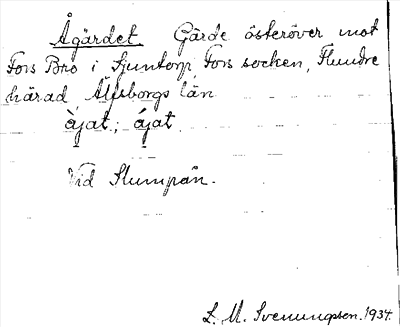 Ågärdet. Gärde österöver mot
Fors Bro i Sjuntorp, Fors socken, Flundre
härad, Älfsborgs län
àjat; ájat
Vid Slumpån.
L. M. Svenungsson. 1934.